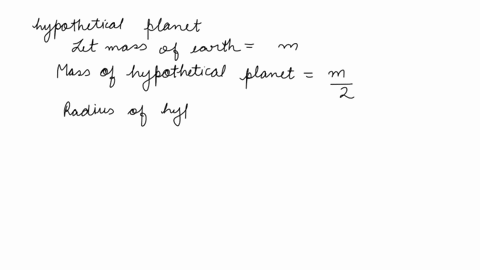 hypothetical planet
Let mass of earth = m
Mass of hypothetical planet = m/2
Radius of hyp